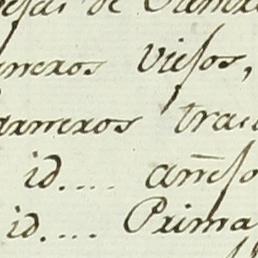 de
neros viejos,
arneros tra
id.... añejo
id.... Prima